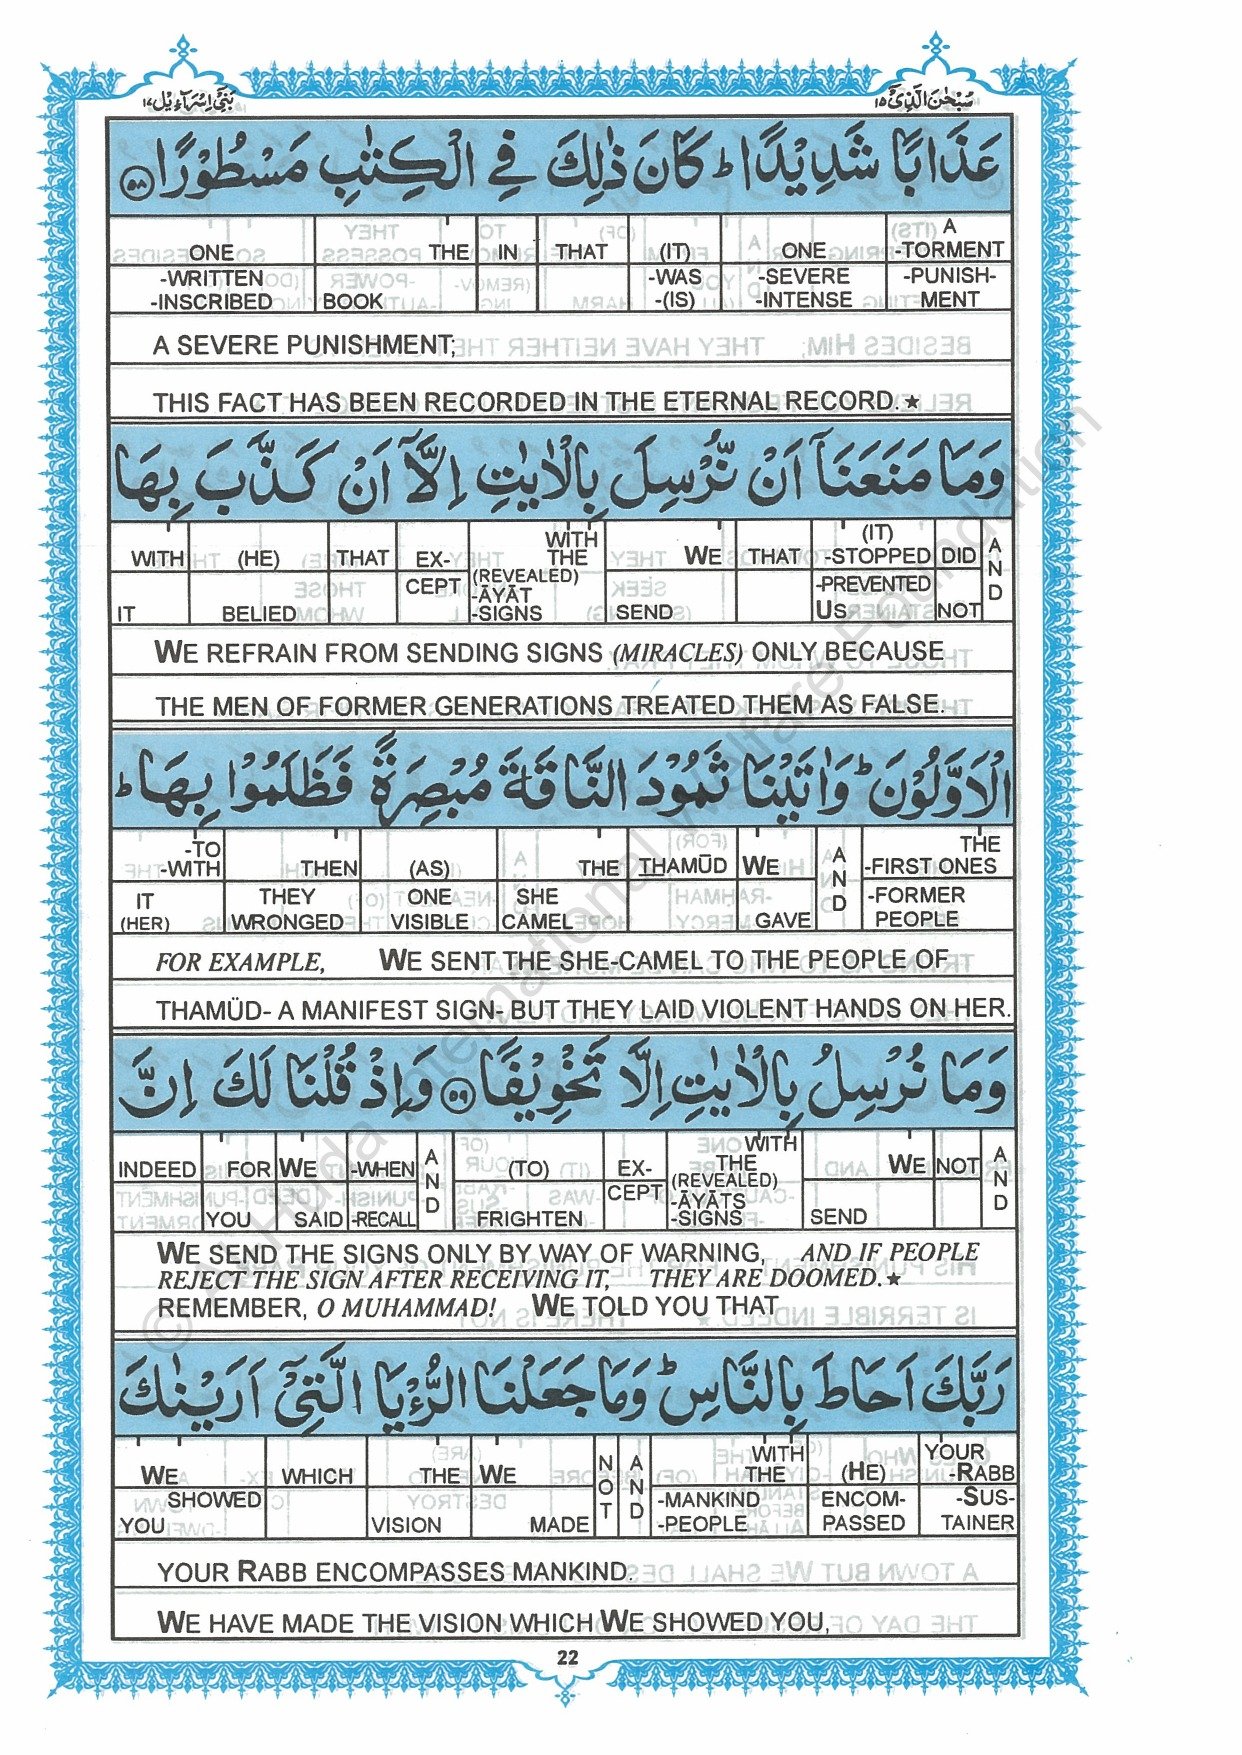 بَنِيْٓ اِسْرَآءِيْل ١٧
سُبْحٰنَ الَّذِيْٓ ١٥
عَذَابًا شَدِيْدًا ؕ كَانَ ذٰلِكَ فِي الْكِتٰبِ مَسْطُوْرًا ﴿٥٨﴾
ONE THE IN THAT (IT) ONE A -TORMENT
-WRITTEN -WAS -SEVERE -PUNISH-
-INSCRIBED BOOK -(IS) -INTENSE MENT
A SEVERE PUNISHMENT;
THIS FACT HAS BEEN RECORDED IN THE ETERNAL RECORD.★
وَمَا مَنَعَنَآ اَنْ نُّرْسِلَ بِالْاٰيٰتِ اِلَّآ اَنْ كَذَّبَ بِهَا
WITH (HE) THAT EX- WITH THE WE THAT (IT) -STOPPED DID AND
CEPT (REVEALED) -ĀYĀT -PREVENTED
IT BELIED -SIGNS SEND US NOT
WE REFRAIN FROM SENDING SIGNS (MIRACLES) ONLY BECAUSE
THE MEN OF FORMER GENERATIONS TREATED THEM AS FALSE.
الْاَوَّلُوْنَ ؕ وَاٰتَيْنَا ثَمُوْدَ النَّاقَةَ مُبْصِرَةً فَظَلَمُوْا بِهَا ؕ
-TO -WITH THEN (AS) THE THAMŪD WE AND THE -FIRST ONES
IT THEY ONE SHE -FORMER
(HER) WRONGED VISIBLE CAMEL GAVE PEOPLE
FOR EXAMPLE, WE SENT THE SHE-CAMEL TO THE PEOPLE OF
THAMÜD- A MANIFEST SIGN- BUT THEY LAID VIOLENT HANDS ON HER.
وَمَا نُرْسِلُ بِالْاٰيٰتِ اِلَّا تَخْوِيْفًا ﴿٥٩﴾ وَاِذْ قُلْنَا لَكَ اِنَّ
INDEED FOR WE -WHEN AND (TO) EX- WITH THE WE NOT AND
CEPT (REVEALED) -ĀYĀTS
YOU SAID -RECALL FRIGHTEN -SIGNS SEND
WE SEND THE SIGNS ONLY BY WAY OF WARNING, AND IF PEOPLE
REJECT THE SIGN AFTER RECEIVING IT, THEY ARE DOOMED.★
REMEMBER, O MUHAMMAD! WE TOLD YOU THAT
رَبَّكَ اَحَاطَ بِالنَّاسِ ؕ وَمَا جَعَلْنَا الرُّءْيَا الَّتِيْٓ اَرَيْنٰكَ
WE WHICH THE WE NOT AND WITH THE (HE) YOUR -RABB
SHOWED -MANKIND ENCOM- -SUS-
YOU VISION MADE -PEOPLE PASSED TAINER
YOUR RABB ENCOMPASSES MANKIND.
WE HAVE MADE THE VISION WHICH WE SHOWED YOU,
22
© Al Huda International Welfare Foundation